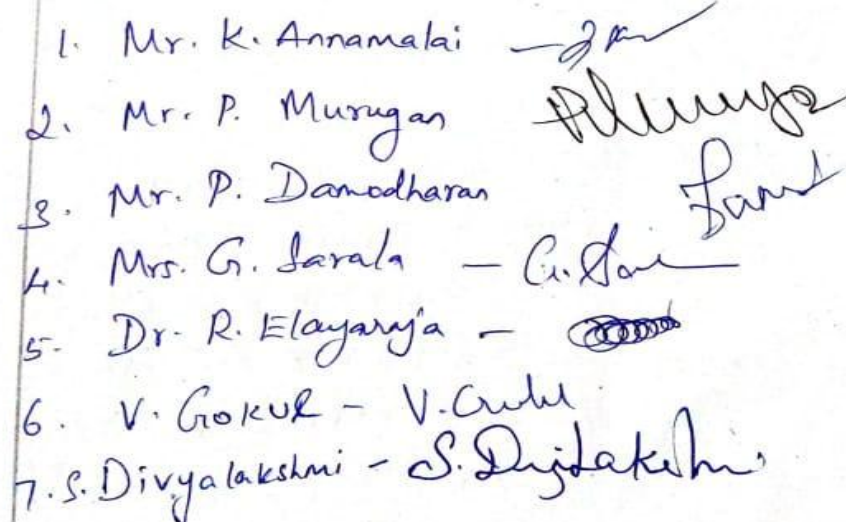 1. Mr. K. Annamalai –
2. Mr. P. Murugan
3. Mr. P. Damodharan
4. Mrs. G. Sarala – G.
5. Dr. R. Elayaraja –
6. V. GOKUL – V.
7. S. Divyalakshmi – S.